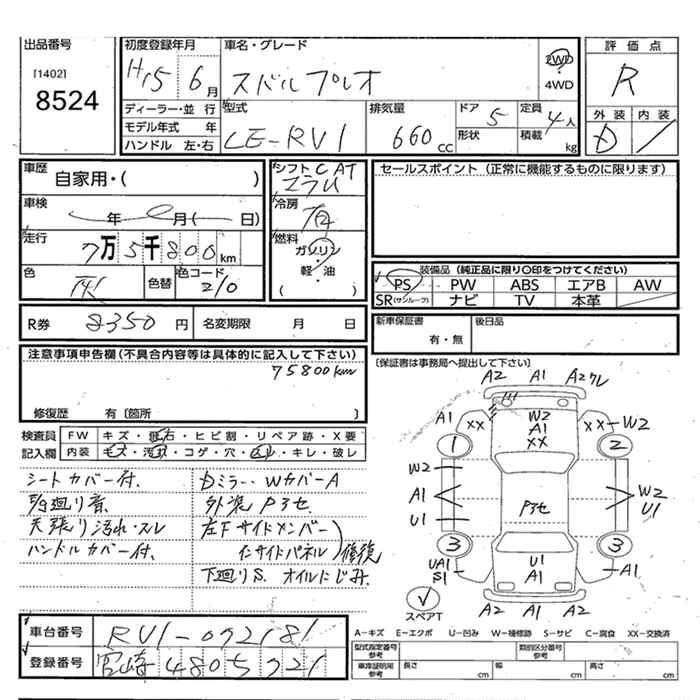 出品番号
[1402]
8524
初度登録年月
H15 6月
車名・グレード
スバル プレオ
2WD
4WD
評価点
R
ディーラー・並行
モデル年式 年
ハンドル 左・右
型式
LE-RV1
排気量
660 CC
ドア 5
形状
定員 4人
積載 kg
外装
D
内装
車歴
自家用・( )
車検
年 月( 日)
走行
7万5千800km
色
色替
色コード
210
シフト CAT
コラム
冷房
燃料
ガソリン
・
軽・油
( )
セールスポイント (正常に機能するものに限ります)
装備品 (純正品に限り〇印をつけてください)
PS PW ABS エアB AW
SR(サンルーフ) ナビ TV 本革
R券 8350円
名変期限 月 日
新車保証書
有・無
後日品
[保証書は事務局へ提出して下さい]
注意事項申告欄(不具合内容等は具体的に記入して下さい)
75800km
修復歴 有〔箇所 〕
検査員
記入欄
FW キズ・飛石・ヒビ割・リペア跡・X要
内装 キズ・汚れ・コゲ・穴・スレ・キレ・破レ
シートカバー付.
天張り汚れ・スレ
ハンドルカバー付.
Dミラー・WカバーA
外装Pスセ
左Fサイドメンバー
インサイドパネル
修復
下廻りS. オイルにじみ.
A2 A1 A2ワレ
A1 XX W2 A1 XX XX W2
1 2
W2
A1
U1
Pスセ
W2
U1
3 3
UA1
S1
U1
A1
A1
スペアT
A2 A1 A2
A-キズ E-エクボ U-凹み W-補修跡 S-サビ C-腐食 XX-交換済
車台番号 RV1-072181
登録番号 宮崎 480 5721
型式指定番号
参考
類別区分番号
参考
車庫証明用
参考
長さ cm
幅 cm
高さ cm